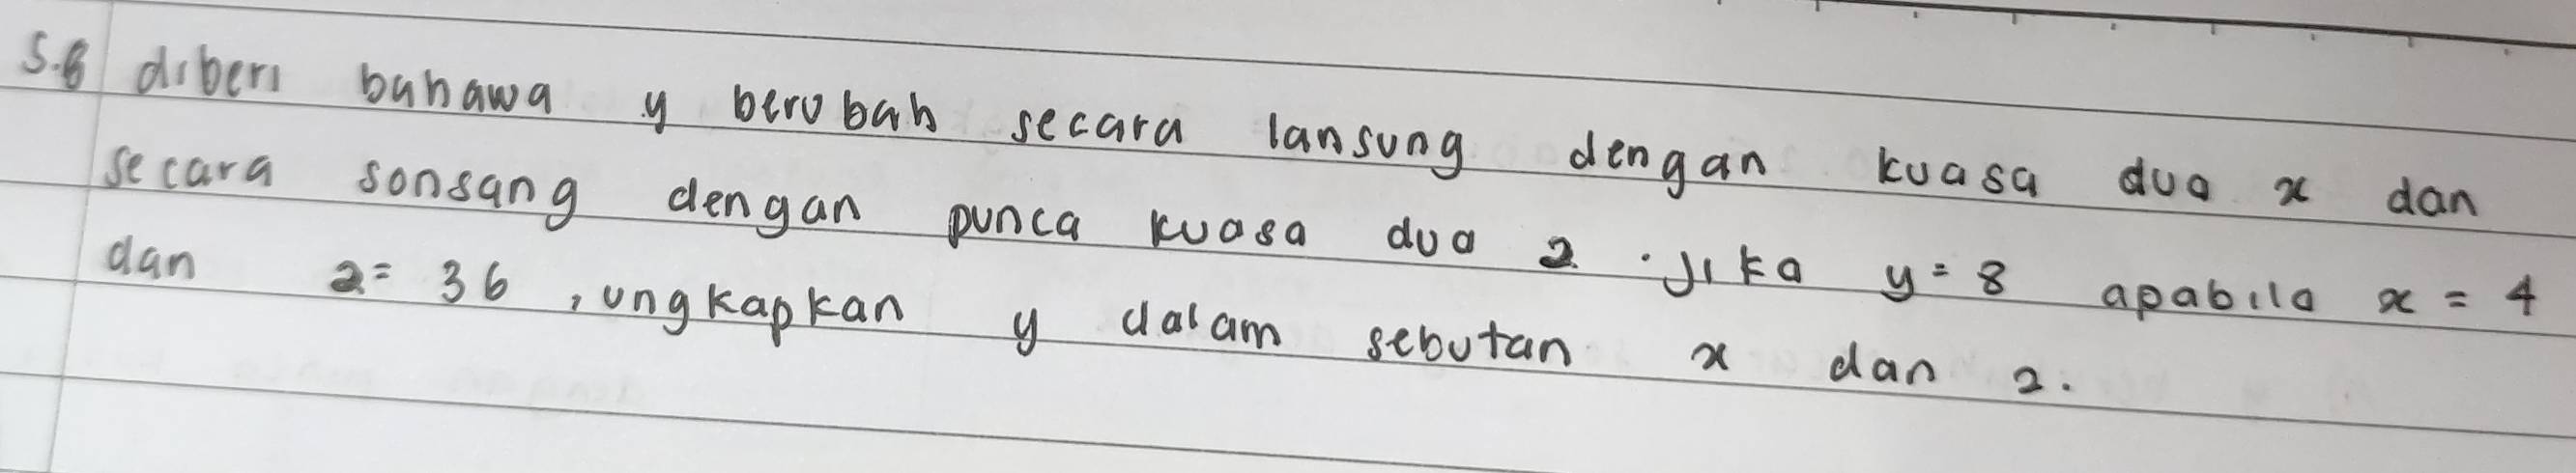 5.6 diberi bahawa y berubah secara lansung dengan kuasa dua x dan
secara sonsang dengan punca kuasa dua z . Jika y = 8 apabila x = 4
dan z = 36 , ungkapkan y dalam sebutan x dan z.